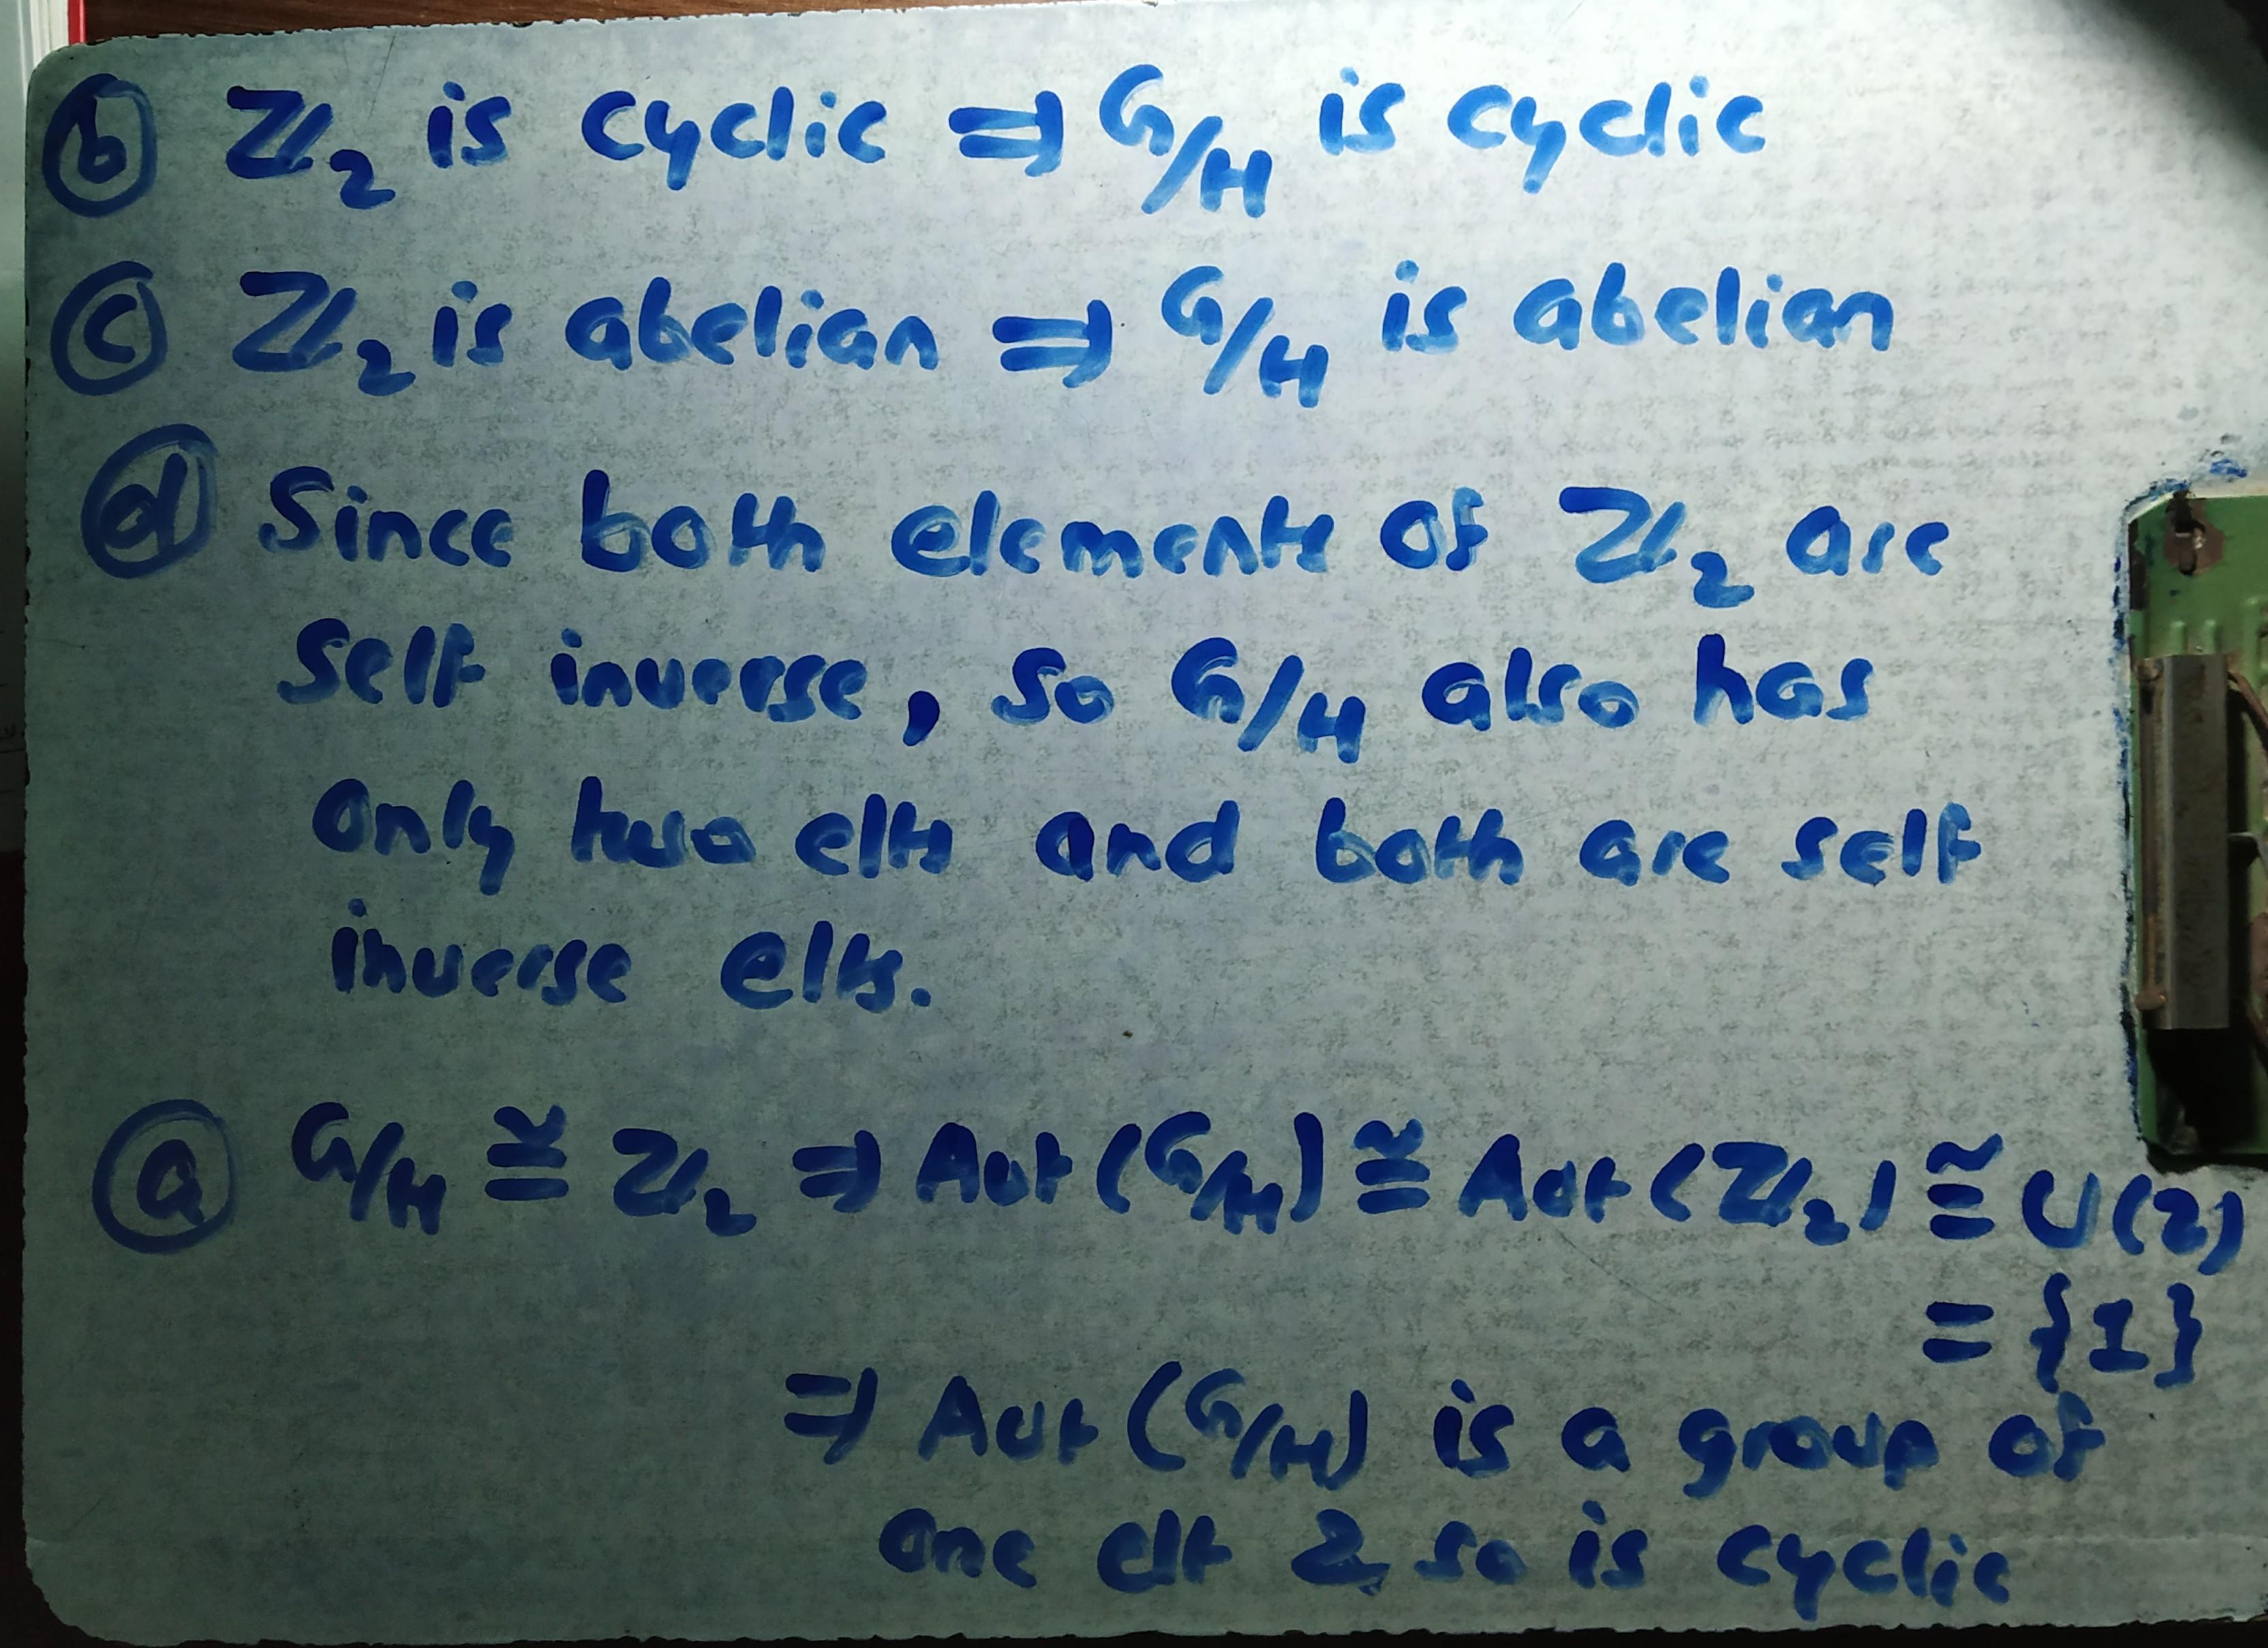 ⓑ ℤ₂ is cyclic ⇒ G/H is cyclic
ⓒ ℤ₂ is abelian ⇒ G/H is abelian
ⓓ Since both elements of ℤ₂ are
self inverse, so G/H also has
only two elts and both are self
inverse elts.
ⓐ G/H ≅ ℤ₂ ⇒ Aut (G/H) ≅ Aut (ℤ₂) ≅ U(2)
= {1}
⇒ Aut (G/H) is a group of
one elt & so is cyclic